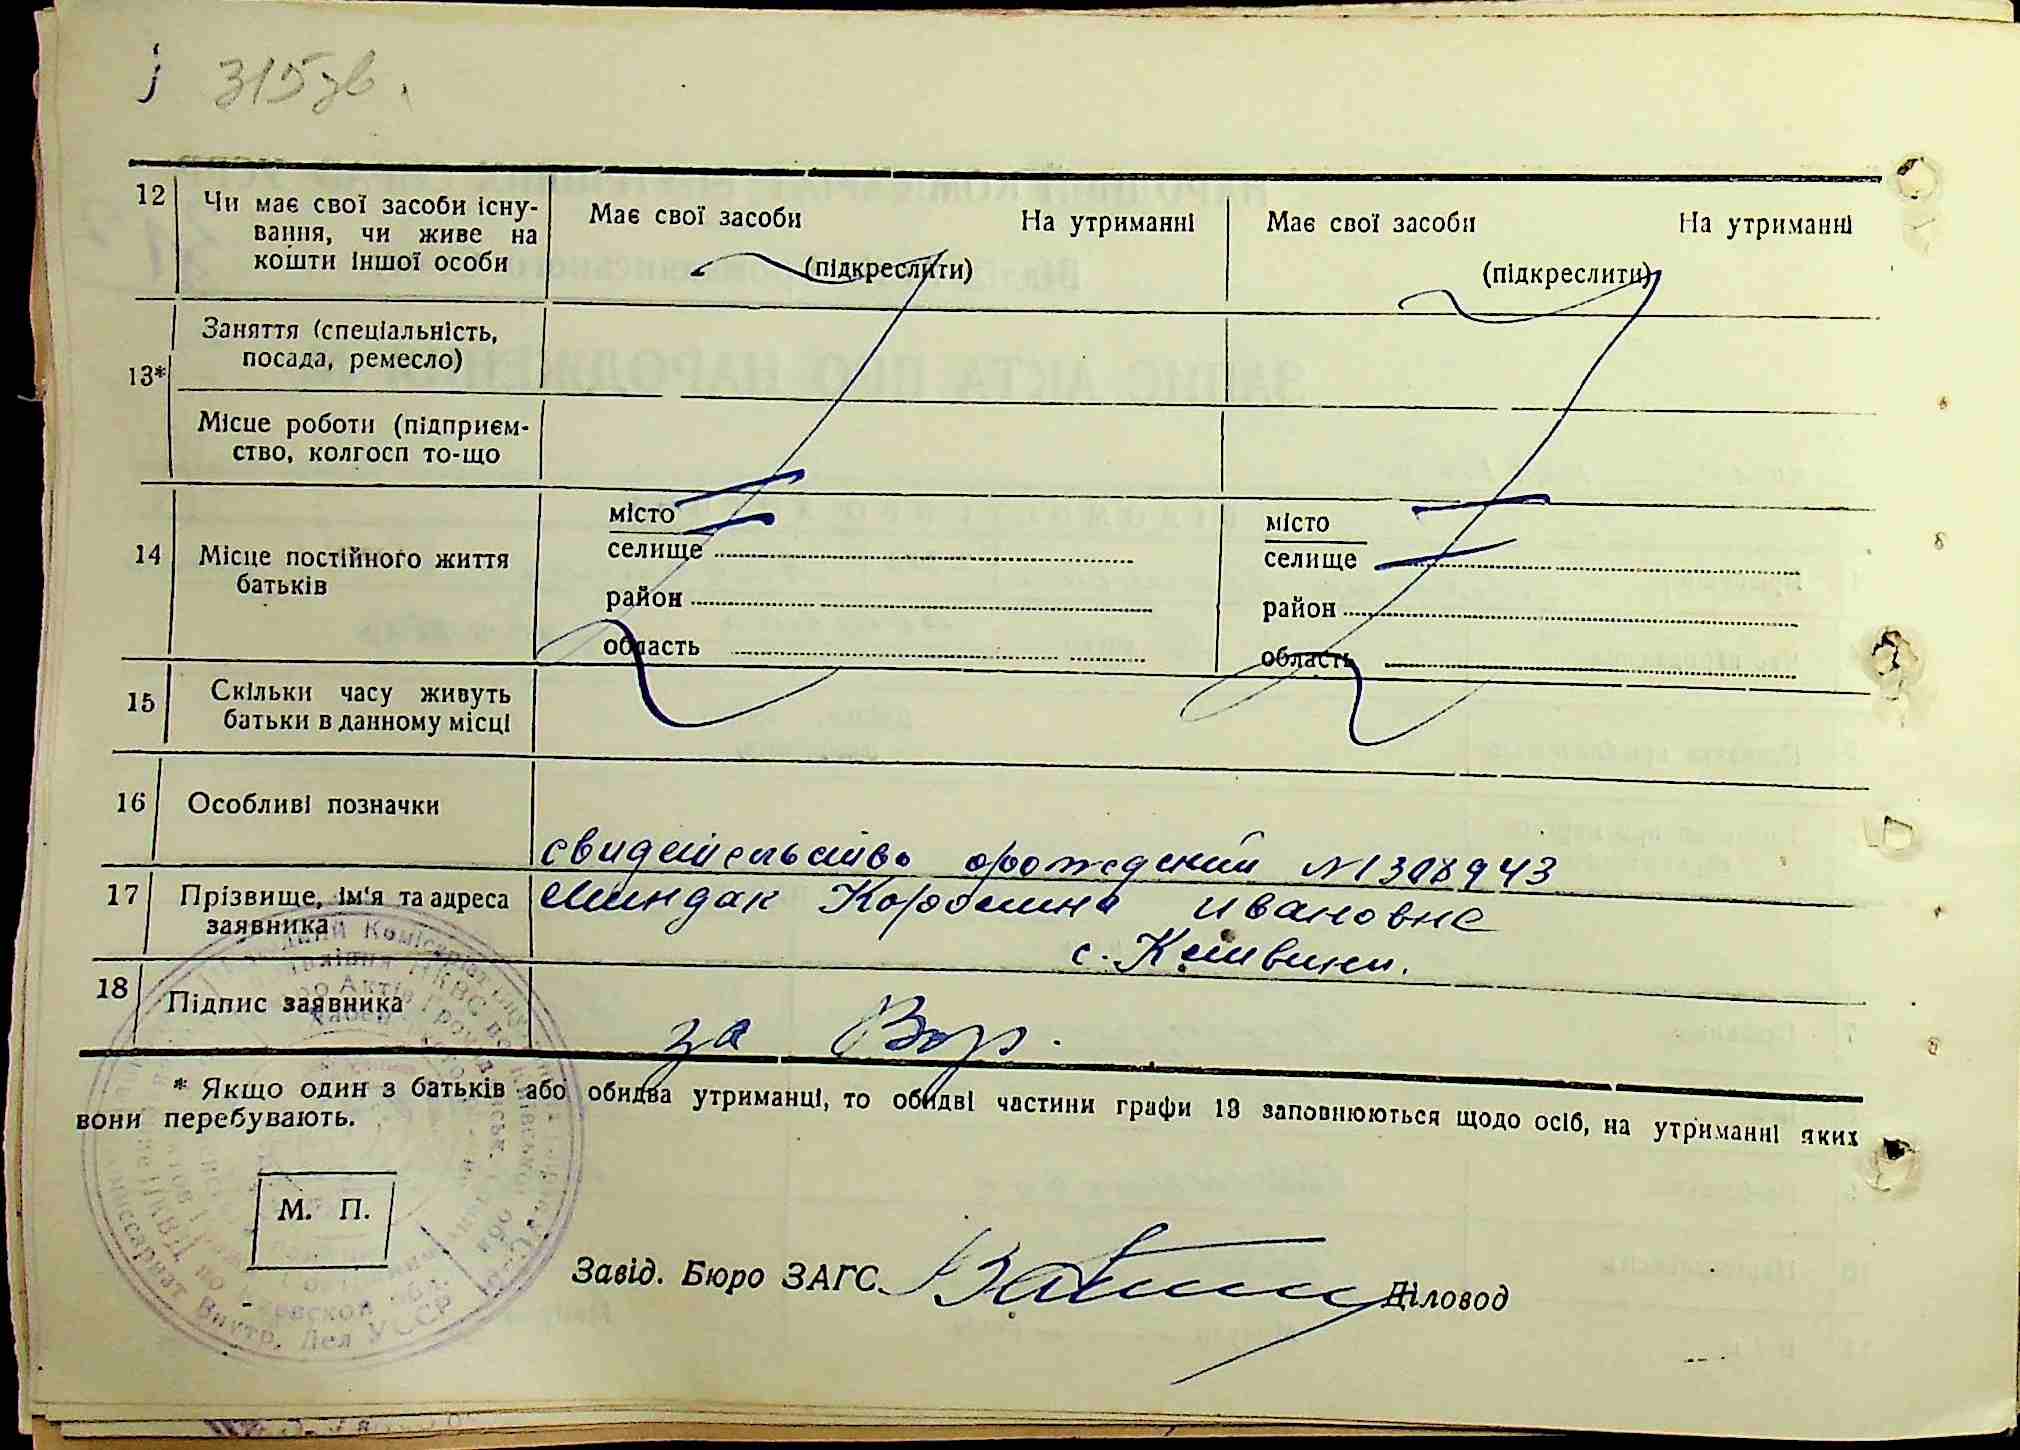 315 зв.
12 Чи має свої засоби існу-
вання, чи живе на
кошти іншої особи
Має свої засоби На утриманні
(підкреслити)
Має свої засоби На утриманні
(підкреслити)
13*
Заняття (спеціальність,
посада, ремесло)
Місце роботи (підприєм-
ство, колгосп то-що
14 Місце постійного життя
батьків
місто
селище
район
область
місто
селище
район
область
15 Скільки часу живуть
батьки в данному місці
16 Особливі позначки
свидетельство о рождении №1308943
17 Прізвище, ім'я та адреса
заявника
Миндак Королина Ивановна
с.
18 Підпис заявника
за
* Якщо один з батьків або обидва утриманці, то обидві частини графи 13 заповнюються щодо осіб, на утриманні яких
вони перебувають.
М. П.
Завід. Бюро ЗАГС Діловод